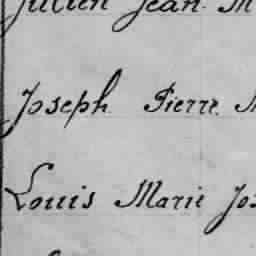 Julien Jean. M
Joseph Pierre. M
Louis Marie Jos